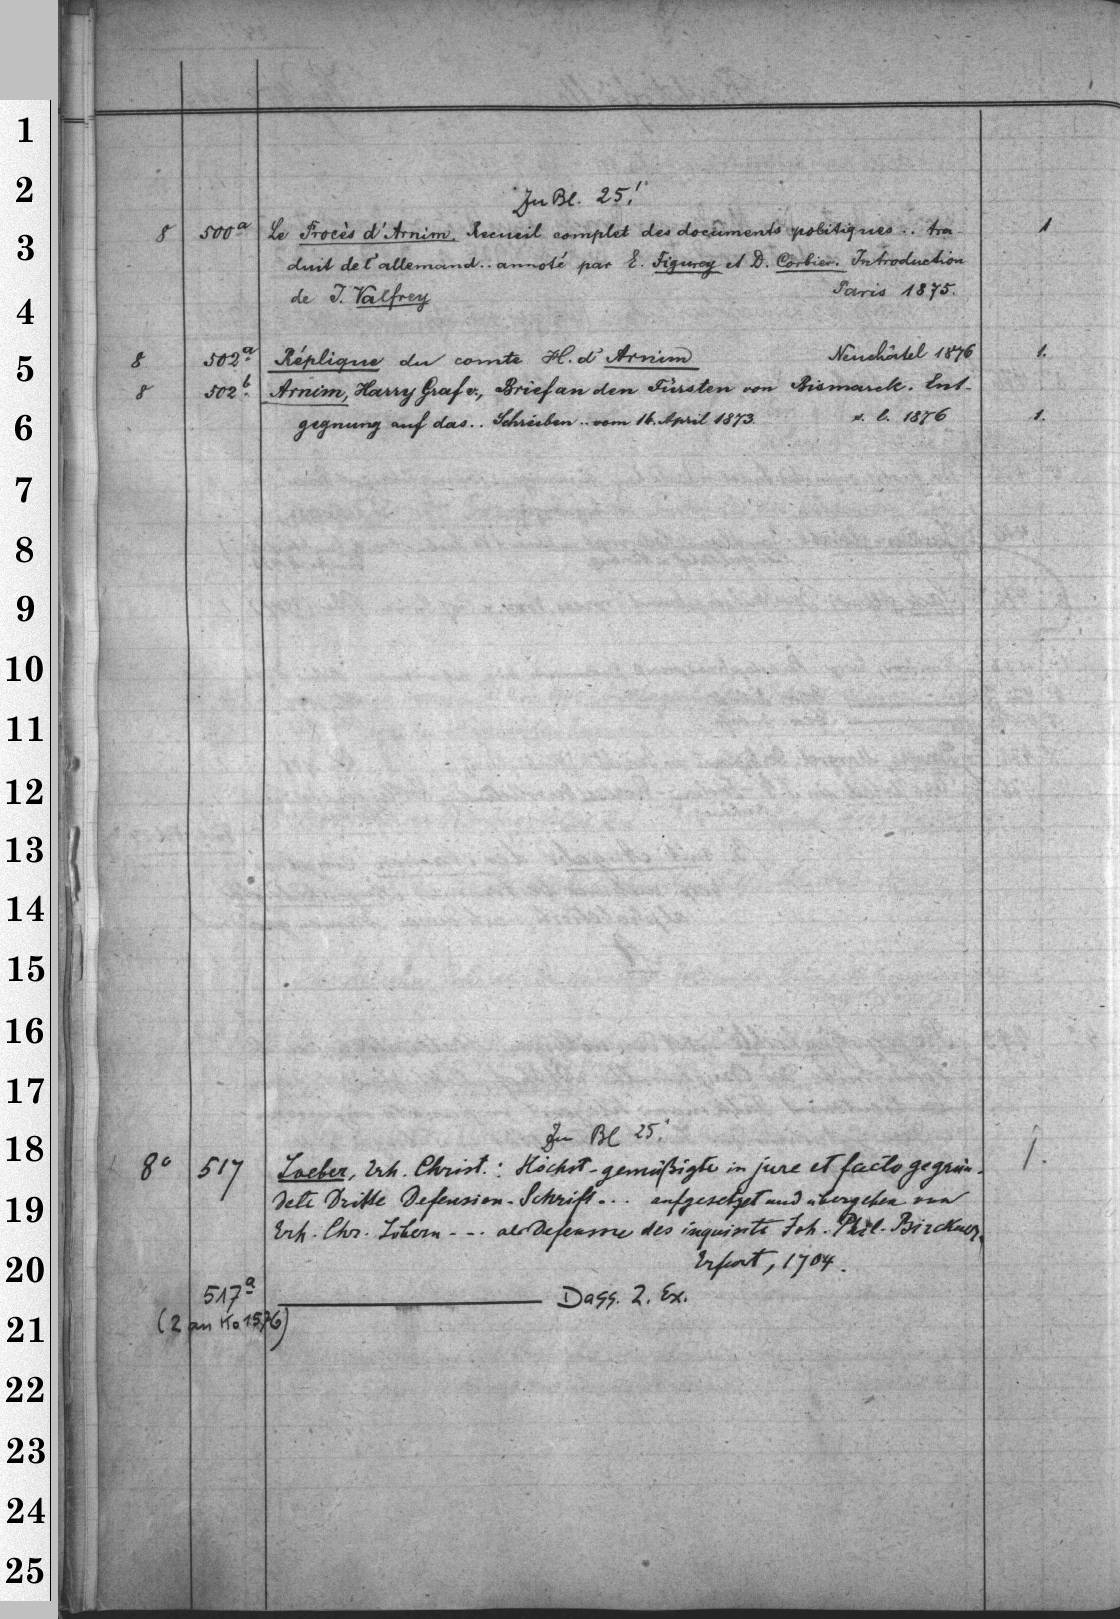 1
2
3
4
5
6
7
8
9
10
11
12
13
14
15
16
17
18
19
20
21
22
23
24
25
Zu Bl. 25!
8 500a Le Procès d'Arnim. Recueil complet des documents politiques .. tra-
duit de l'allemand .. annoté par E. Figurey et D. Corbier. Introduction
de J. Valfrey Paris 1875. 1
8 502a. Réplique du comte H. d'Arnim Neuchâtel 1876 1.
8 502b. Arnim, Harry Graf v., Brief an den Fürsten von Bismarck. Ent-
gegnung auf das .. Schreiben .. vom 16. April 1873. s. l. 1876 1.
Zu Bl 25!
8° 517 Loeber, Erh. Christ.: Höchst-gemüßigte in jure et facto gegrün- 1.
dete Dritte Defension-Schrift ... aufgesetzet und übergeben von
Erh. Chr. Löbern --- als Defensore des inquisiti Joh. Phil. Birckner.
Erfurt, 1704.
517a. Dass. 2. Ex.
(2 an Ko 1576)